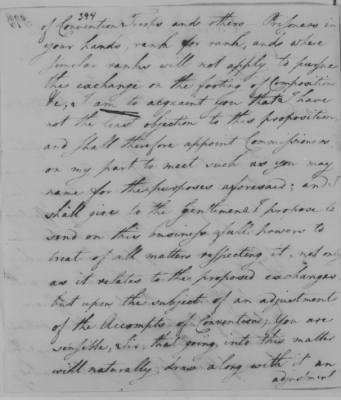 394
of Convention Troops and others Prisoners in
your hands, rank for rank, and where
similar ranks will not apply to pursue
the exchange on the footing of Composition
&c, I am to acquaint you that I have
not the least objection to this proposition
and shall therefore appoint Commissioners
on my part to meet such as you may
name for the purposes aforesaid; and I
shall give to the Gentlemen I propose to
send on this business full powers to
treat of all matters respecting it, not only
as it relates to the proposed exchanges
but upon the subject of an adjustment
of the Accompts of Convention; You are
sensible, Sir, that going into this matter
will naturally draw along with it an
adjustment